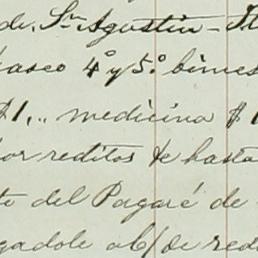 de Sn Agustin - Fl
basco 4º y 5º bimes
$1,.. medicina $1
por reditos de hasta
te del Pagaré de
gadole ab/ de red